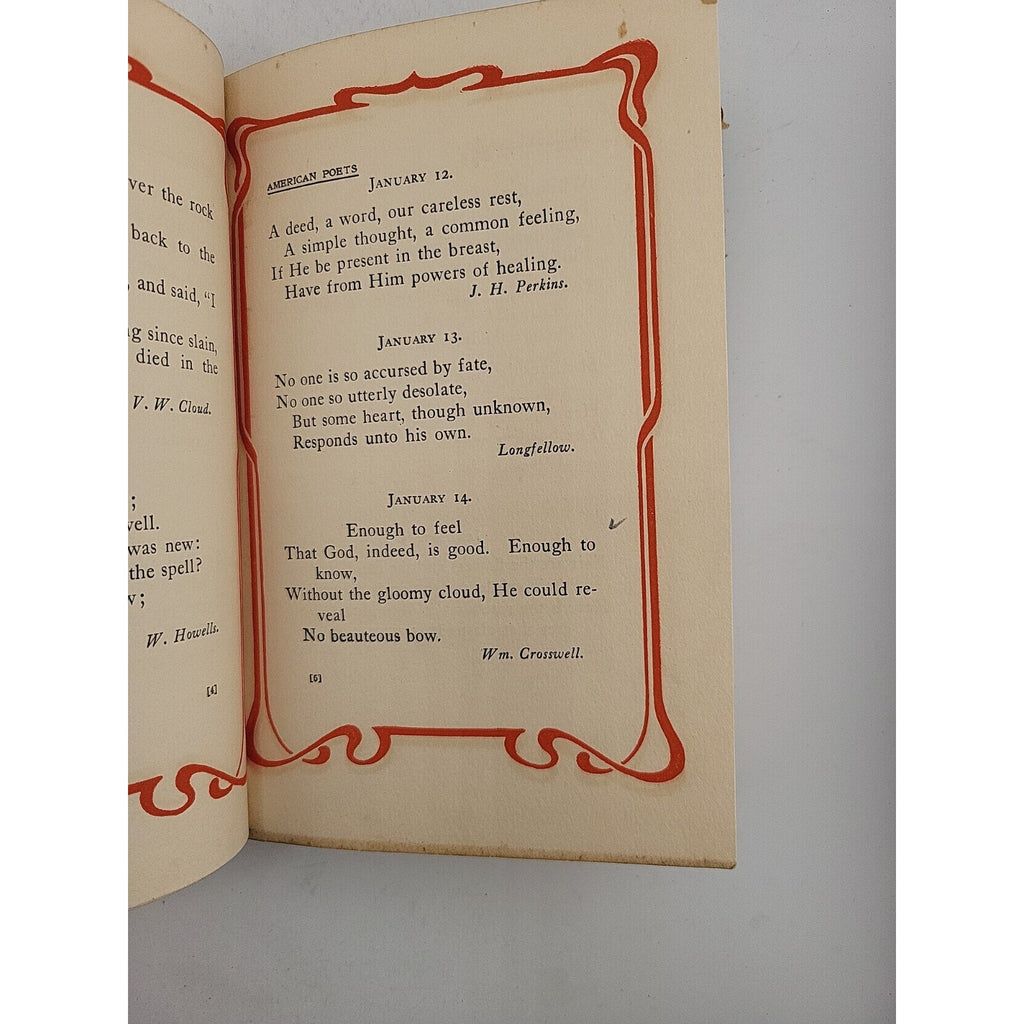 ver the rock
back to the
, and said, "I
g since slain,
died in the
V. W. Cloud.
;
vell.
was new:
the spell?
v;
W. Howells.
[4]
AMERICAN POETS
JANUARY 12.
A deed, a word, our careless rest,
A simple thought, a common feeling,
If He be present in the breast,
Have from Him powers of healing.
J. H. Perkins.
JANUARY 13.
No one is so accursed by fate,
No one so utterly desolate,
But some heart, though unknown,
Responds unto his own.
Longfellow.
JANUARY 14.
Enough to feel
That God, indeed, is good. Enough to
know,
Without the gloomy cloud, He could re-
veal
No beauteous bow.
Wm. Crosswell.
[5]